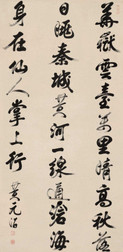 華嶽雲臺萬里晴高秋落
日眺秦城黃河一線通滄海
身在仙人掌上行
黃元治